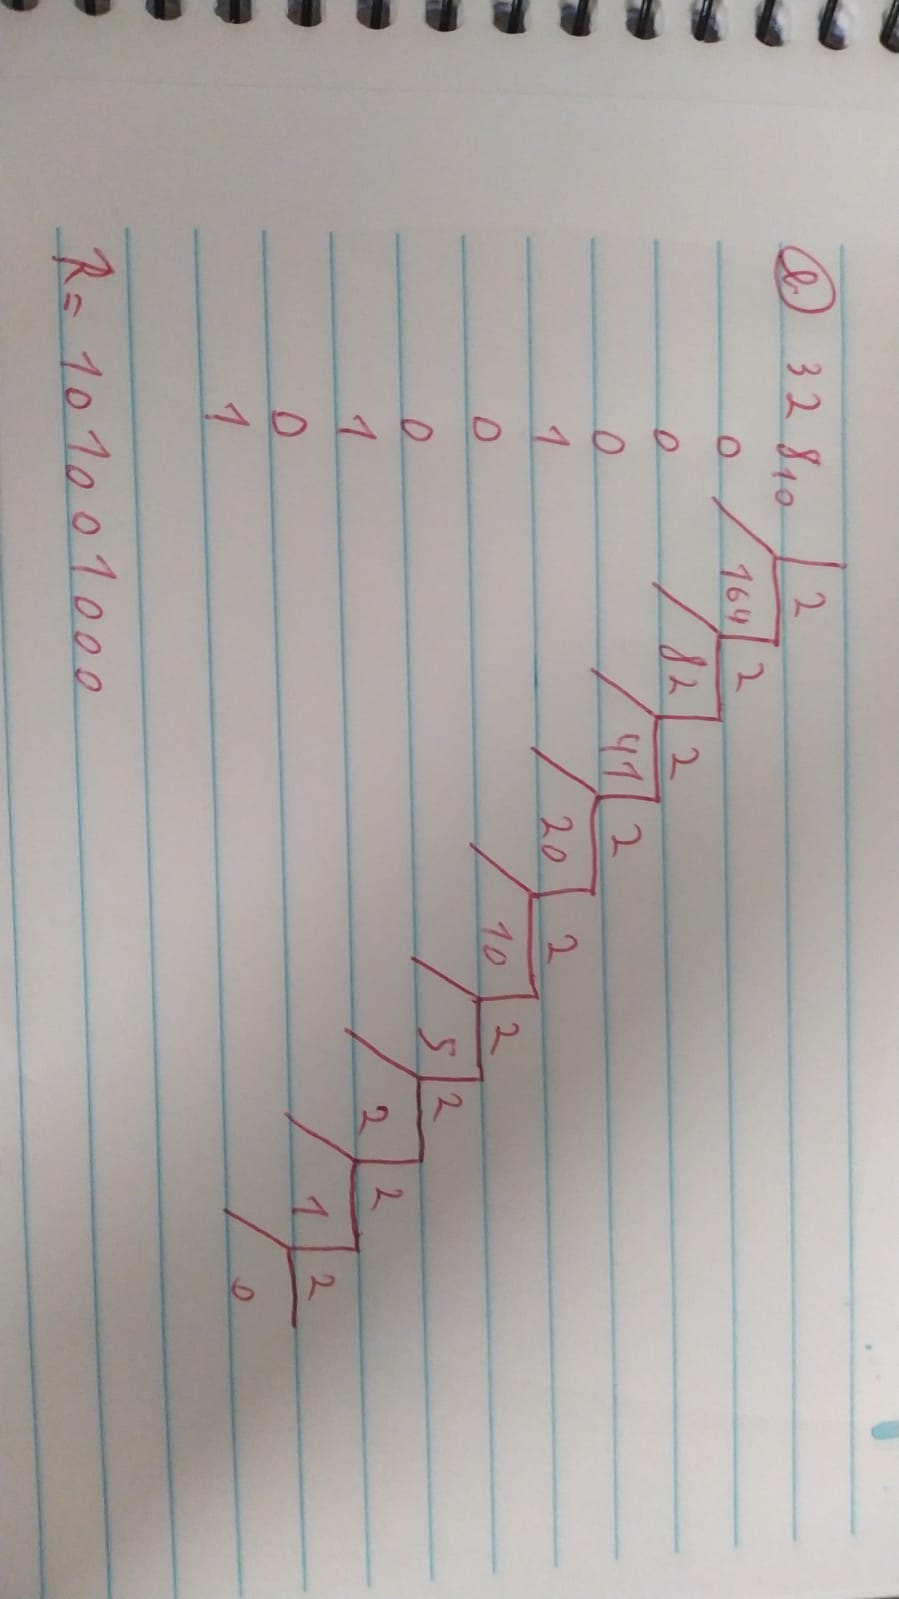 a 328₁₀ 2
0 164 2
0 82 2
0 41 2
1 20 2
0 10 2
0 5 2
1 2 2
0 1 2
1 0
R= 101001000